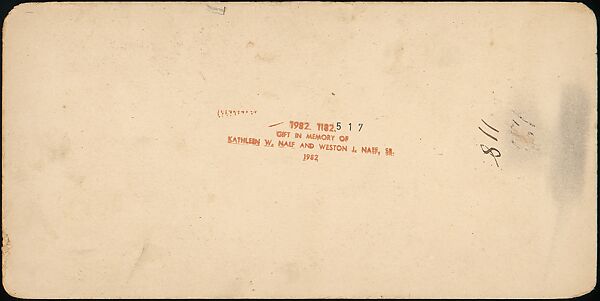 1982. 1182.517
GIFT IN MEMORY OF
KATHLEEN W. NAEF AND WESTON J. NAEF, SR.
1982
811